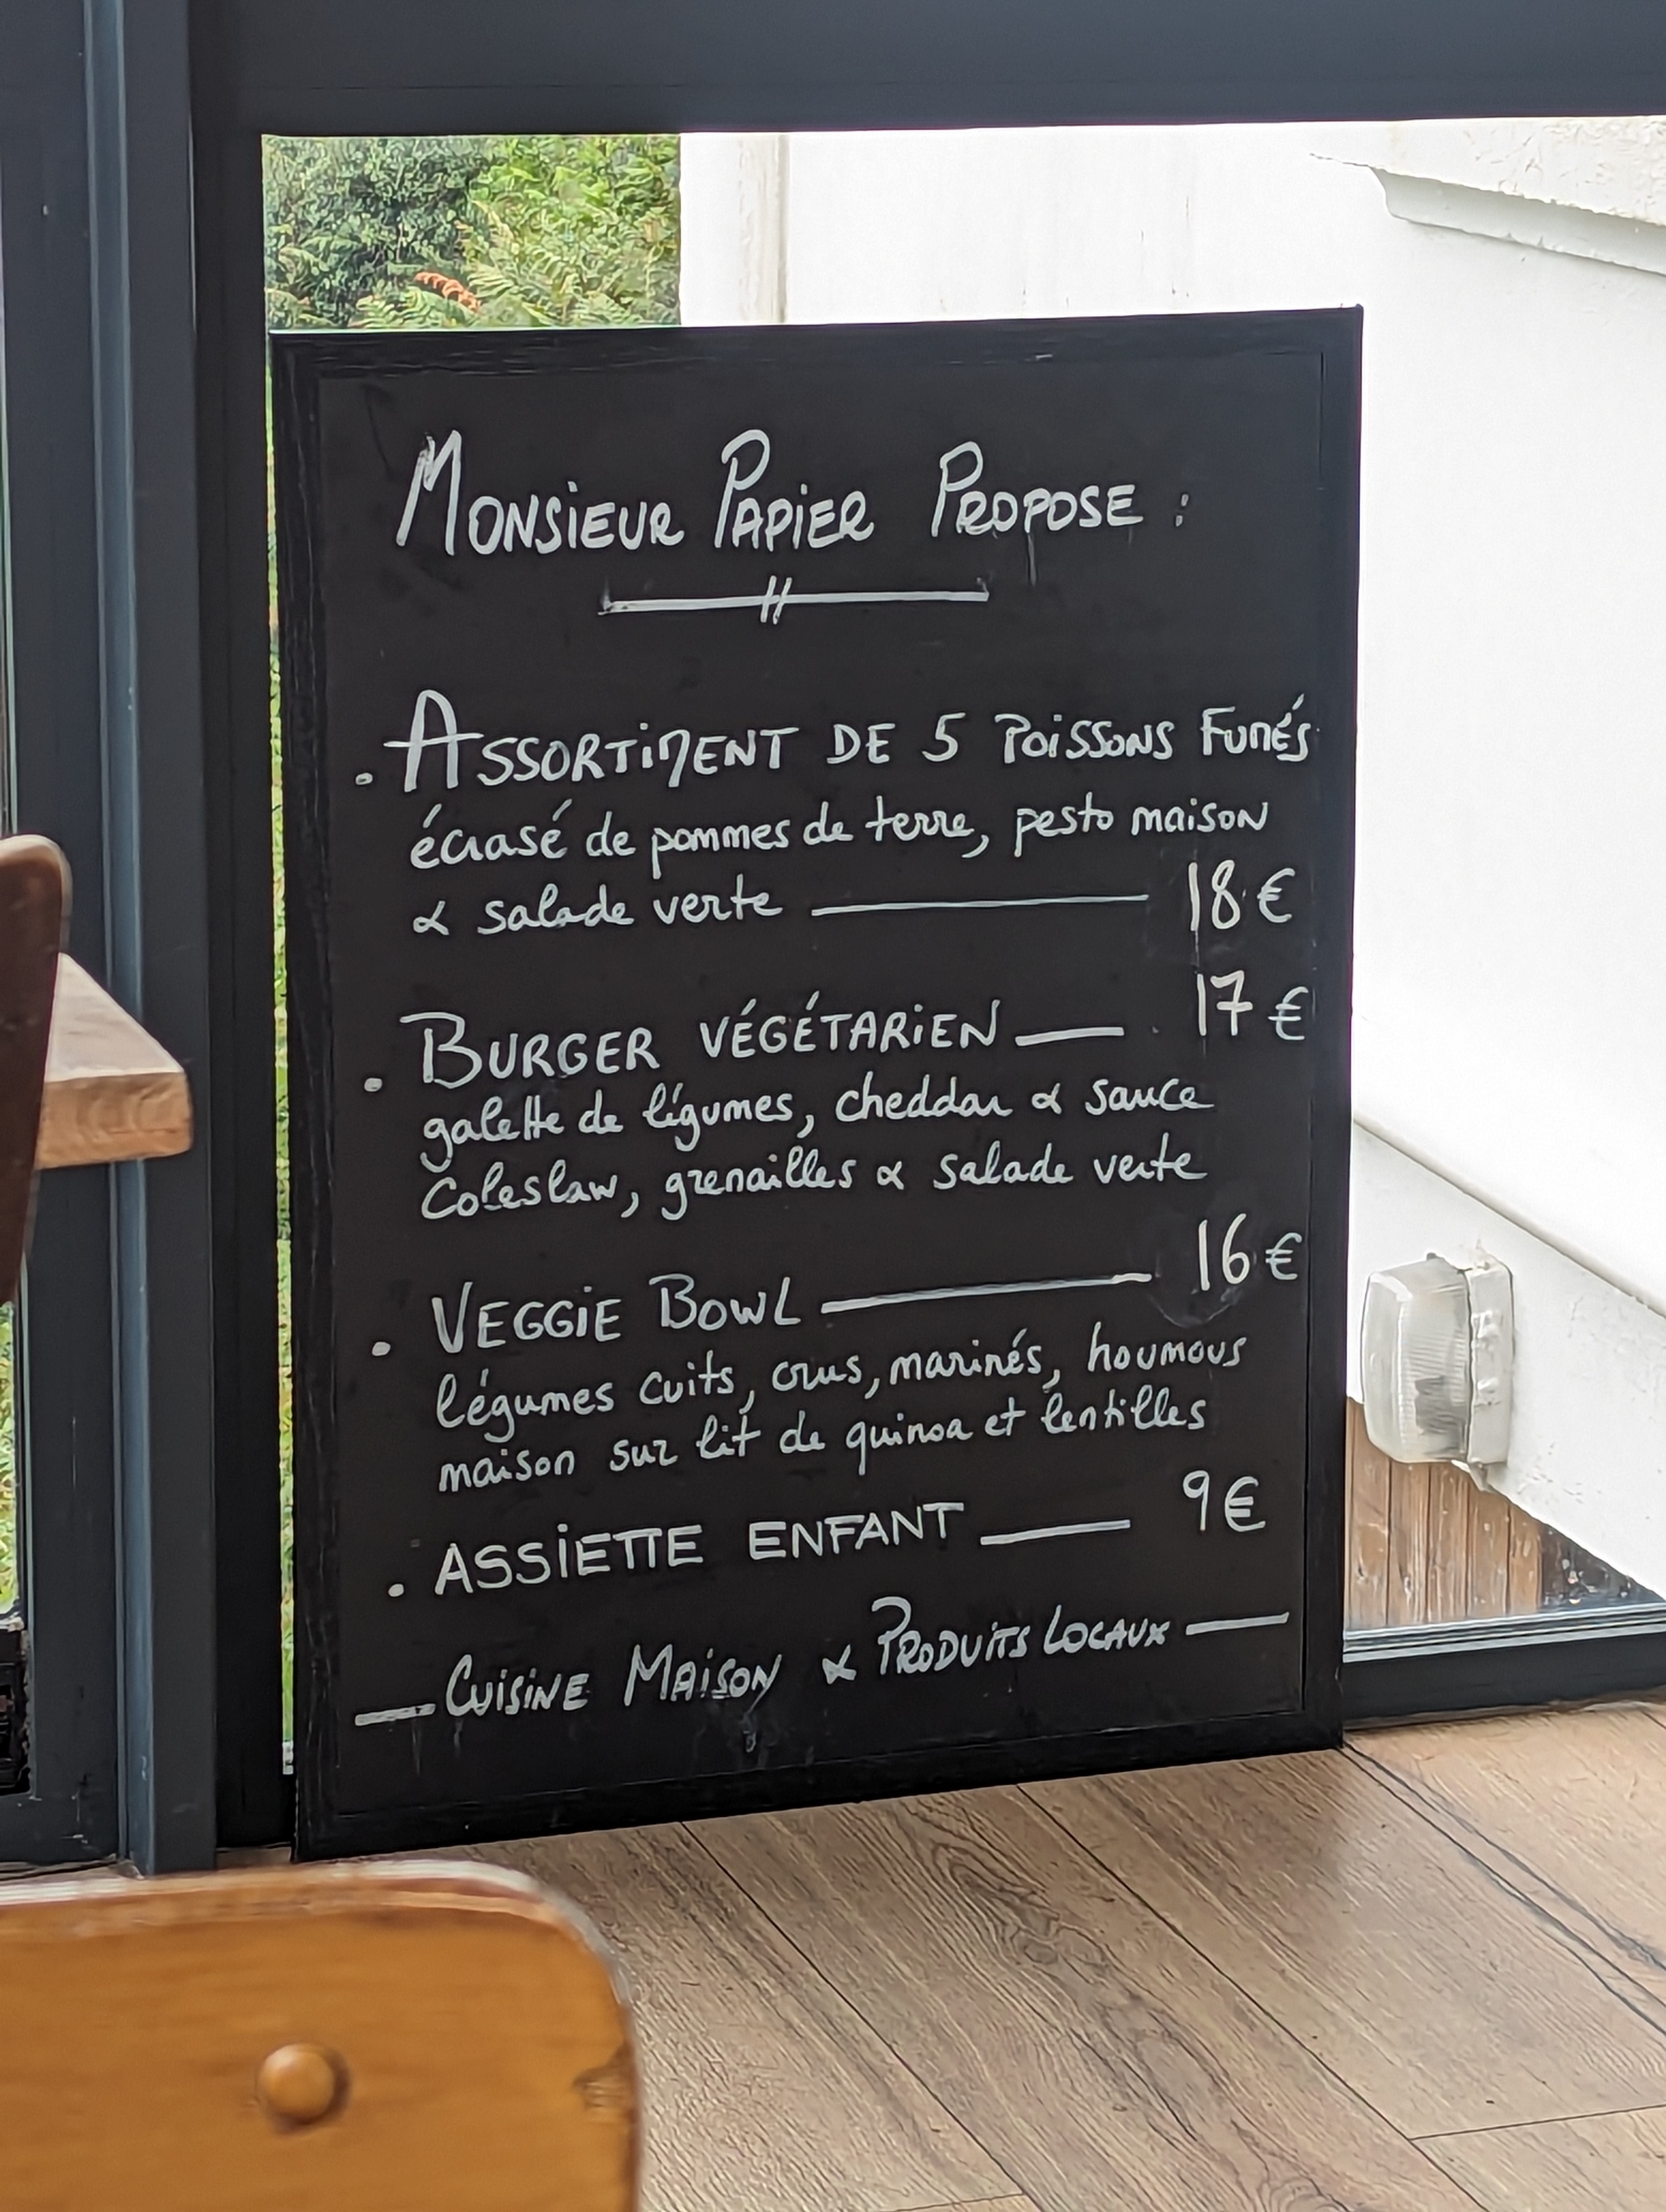 MONSIEUR PAPIER PROPOSE :
. ASSORTIMENT DE 5 POISSONS FUMÉS
écrasé de pommes de terre, pesto maison
& salade verte — 18 €
. BURGER VÉGÉTARIEN — 17 €
galette de légumes, cheddar & sauce
Coleslaw, grenailles & salade verte
. VEGGIE BOWL — 16 €
légumes cuits, crus, marinés, houmous
maison sur lit de quinoa et lentilles
. ASSIETTE ENFANT — 9 €
— CUISINE MAISON & PRODUITS LOCAUX —